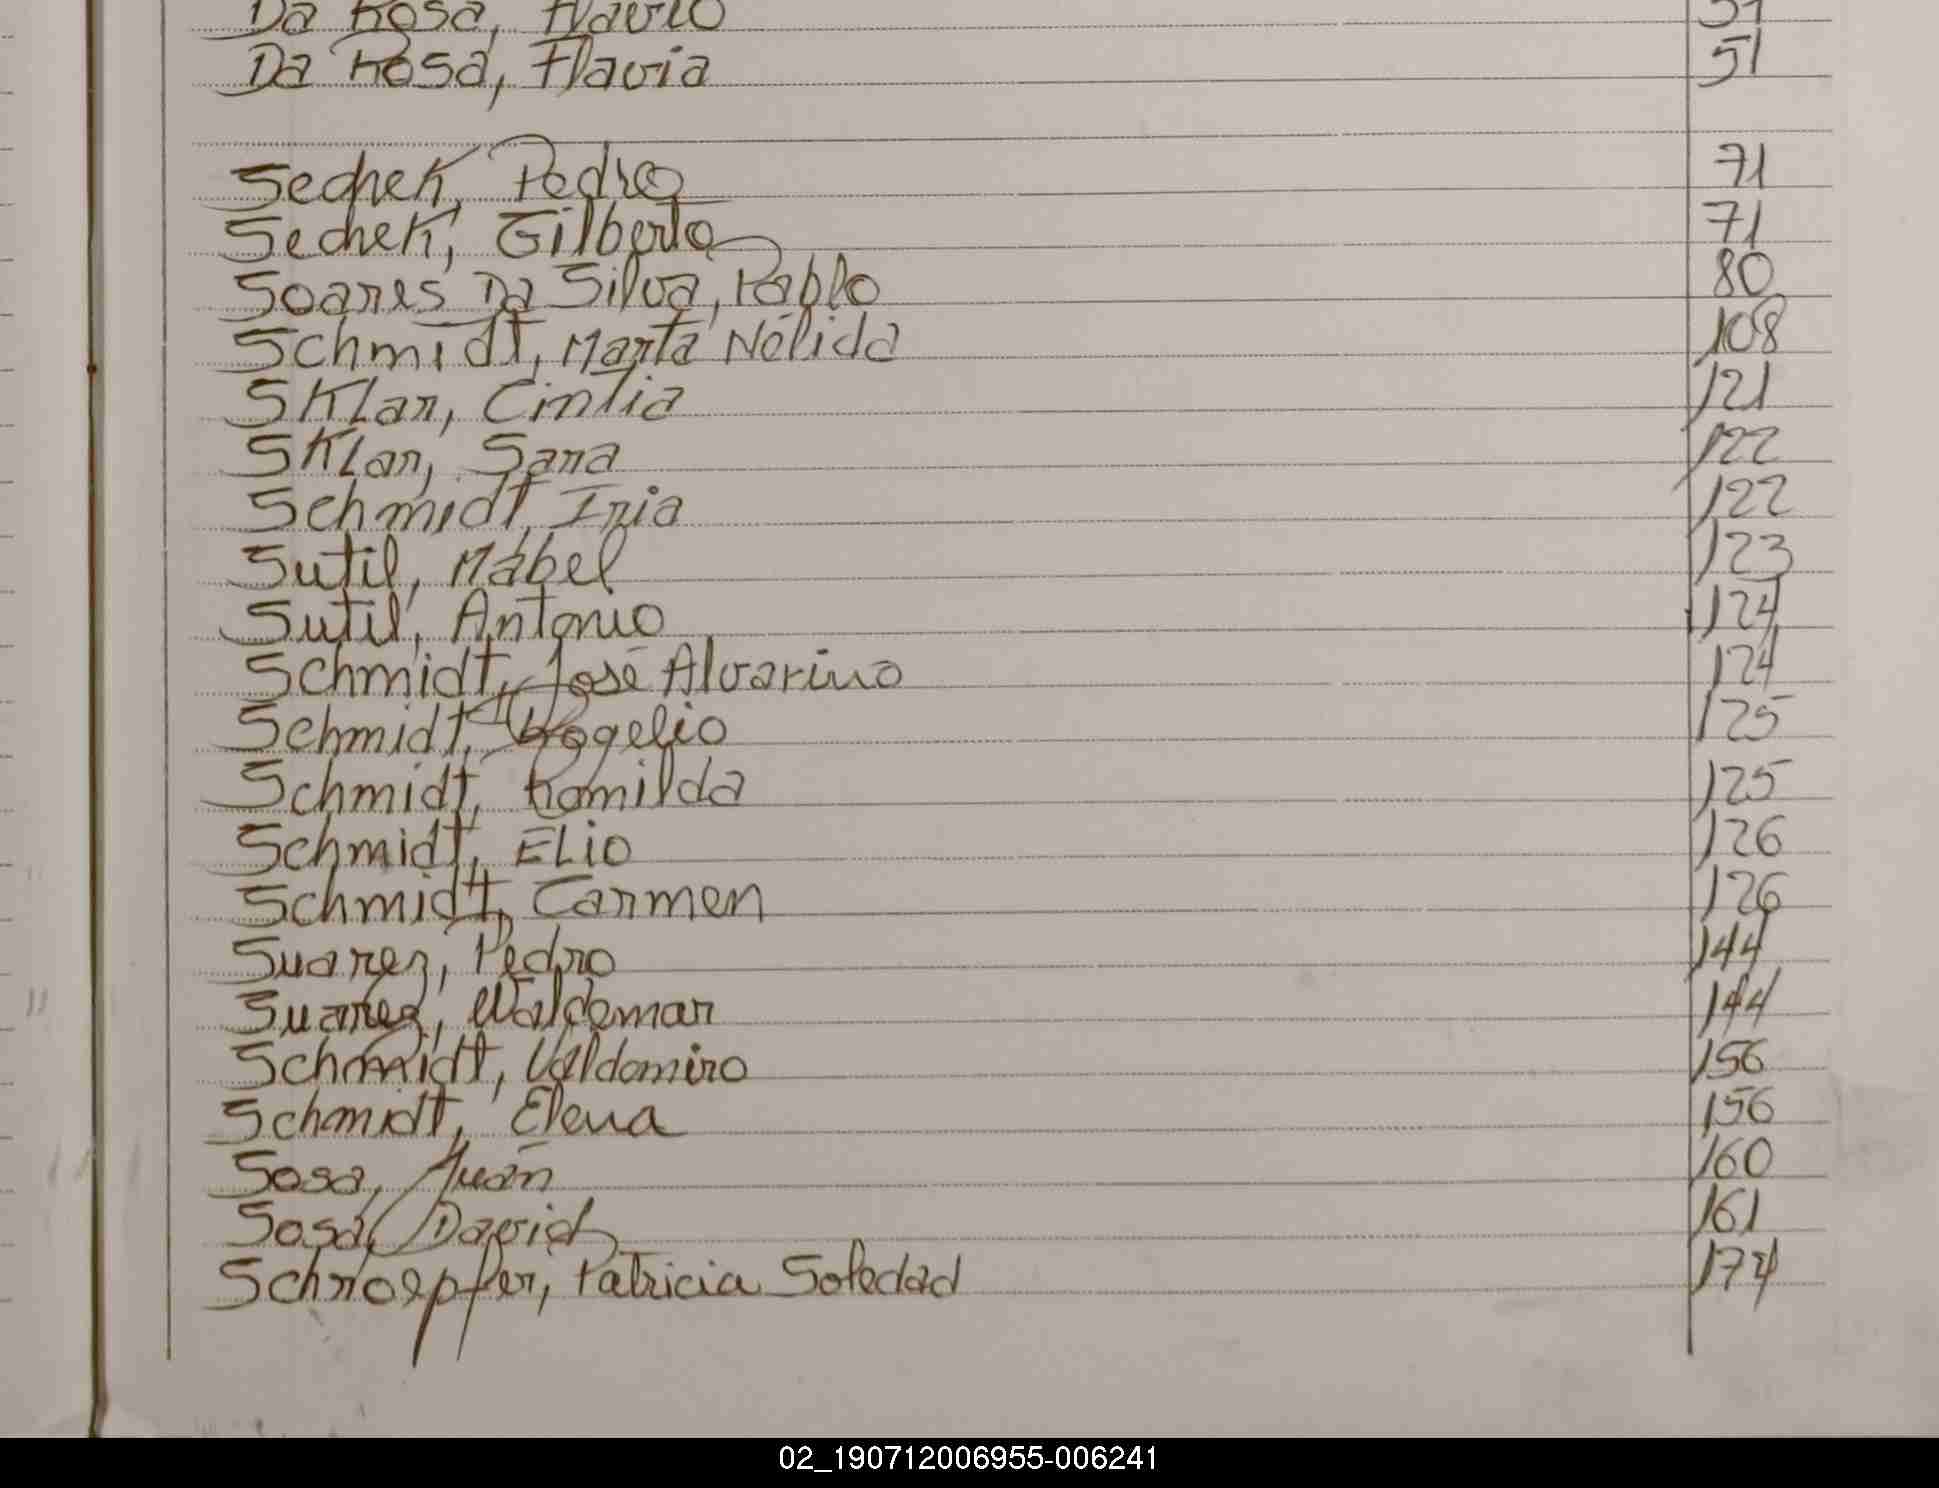 Da Rosa, Flavio 51
Da Rosa, Flavia 51
Sechek, Pedro 71
Sechek, Gilberto 71
Soares Da Silva, Pablo 80
Schmidt, Marta Nélida 108
Sklar, Cintia 121
Sklar, Sara 122
Schmidt, Iria 122
Sutil, Mabel 123
Sutil, Antonio 124
Schmidt, José Alvarino 124
Schmidt, Rogelio 125
Schmidt, Romilda 125
Schmidt, Elio 126
Schmidt, Carmen 126
Suarez, Pedro 144
Suarez, Waldemar 144
Schmidt, Valdomiro 156
Schmidt, Elena 156
Sosa, Juan 160
Sosa, David 161
Schroepfer, Patricia Soledad 174
02_190712006955-006241